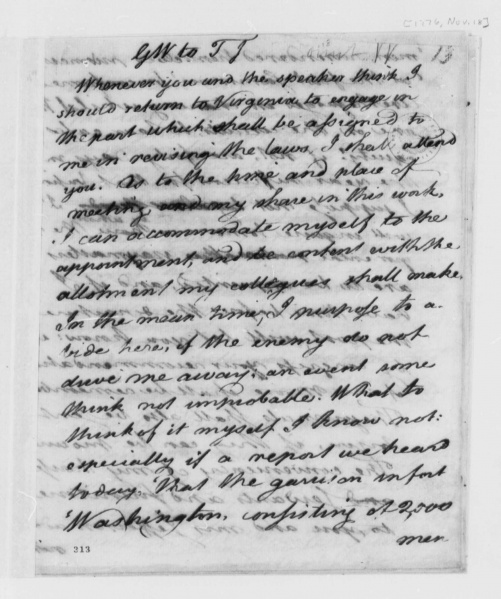 [1776, Nov 18]
GW to TJ
13
Whenever you and the speaker think I
should return to Virginia to engage in
the part which shall be assigned to
me in revising the laws, I shall attend
you. As to the time and place of
meeting, and my share in this work,
I can accommodate myself to the
appointment, and be content with the
allotment my collegues shall make.
In the mean time, I purpose to a-
bide here, if the enemy do not
drive me away; an event some
think not improbable. What to
think of it myself I know not:
especially if a report we heard
today, 'That the garrison in fort
'Washington, consisting of 2,500
men
213